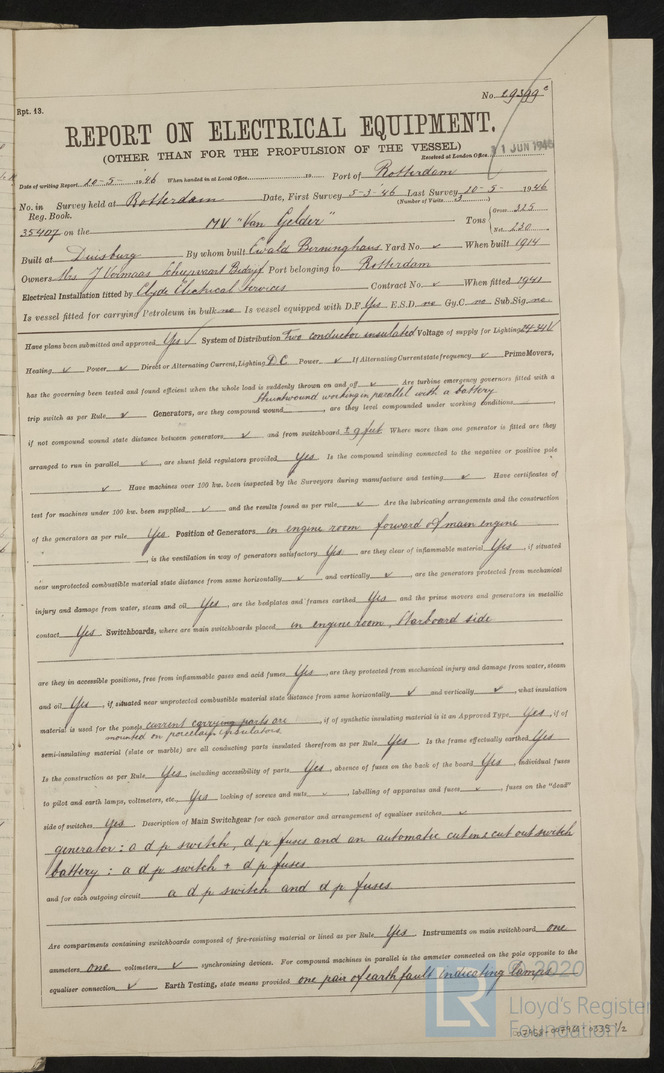 Rpt. 13.
No. 29399
REPORT ON ELECTRICAL EQUIPMENT.
(OTHER THAN FOR THE PROPULSION OF THE VESSEL)
Received at London Office 11 JUN 1946
Date of writing Report 20-5-1946 When handed in at Local Office 19 Port of Rotterdam
No. in Survey held at Rotterdam Date, First Survey 5-3-'46 Last Survey 20-5-1946
Reg. Book. (Number of Visits
35407 on the MV "Van Gelder" Tons Gross 325 Net 220
Built at Duisburg By whom built Ewald Berninghaus Yard No. ✓ When built 1914
Owners Mrs J Vermaas Scheepvaart Bedryf Port belonging to Rotterdam
Electrical Installation fitted by Clyde Electrical Services Contract No. ✓ When fitted 1941
Is vessel fitted for carrying Petroleum in bulk no Is vessel equipped with D.F. Yes E.S.D. no Gy.C. no Sub.Sig. no
Have plans been submitted and approved Yes ✓ System of Distribution Two conductor insulated Voltage of supply for Lighting 24-31V
Heating ✓ Power ✓ Direct or Alternating Current, Lighting D.C. Power ✓ If Alternating Current state frequency ✓ Prime Movers,
has the governing been tested and found efficient when the whole load is suddenly thrown on and off ✓ Are turbine emergency governors fitted with a
Shuntwound working in parallel with a battery
trip switch as per Rule ✓ Generators, are they compound wound, are they level compounded under working conditions
if not compound wound state distance between generators ✓ and from switchboard ± 9 feet Where more than one generator is fitted are they
arranged to run in parallel ✓, are shunt field regulators provided Yes Is the compound winding connected to the negative or positive pole
✓ Have machines over 100 kw. been inspected by the Surveyors during manufacture and testing ✓ Have certificates of
test for machines under 100 kw. been supplied ✓ and the results found as per rule ✓ Are the lubricating arrangements and the construction
of the generators as per rule Yes Position of Generators in engine room forward of main engine
, is the ventilation in way of generators satisfactory Yes are they clear of inflammable material Yes, if situated
near unprotected combustible material state distance from same horizontally ✓ and vertically ✓, are the generators protected from mechanical
injury and damage from water, steam and oil Yes, are the bedplates and frames earthed Yes and the prime movers and generators in metallic
contact Yes Switchboards, where are main switchboards placed in engine room, Starboard side
are they in accessible positions, free from inflammable gases and acid fumes Yes, are they protected from mechanical injury and damage from water, steam
and oil Yes, if situated near unprotected combustible material state distance from same horizontally ✓ and vertically ✓, what insulation
material is used for the panels current carrying parts are, if of synthetic insulating material is it an Approved Type Yes, if of
mounted on porcelain insulators
semi-insulating material (slate or marble) are all conducting parts insulated therefrom as per Rule Yes Is the frame effectually earthed Yes
Is the construction as per Rule Yes, including accessibility of parts Yes, absence of fuses on the back of the board Yes, individual fuses
to pilot and earth lamps, voltmeters, etc. Yes locking of screws and nuts ✓, labelling of apparatus and fuses ✓, fuses on the "dead"
side of switches Yes Description of Main Switchgear for each generator and arrangement of equaliser switches ✓
generator: a d p switch, d p fuses and an automatic cut in & cut out switch
battery: a d p switch + d p fuses
and for each outgoing circuit a d p switch and d p fuses
Are compartments containing switchboards composed of fire-resisting material or lined as per Rule Yes Instruments on main switchboard one
ammeters one voltmeters ✓ synchronising devices. For compound machines in parallel is the ammeter connected on the pole opposite to the
equaliser connection ✓ Earth Testing, state means provided one pair of earth fault indicating lamps
© 2020
LR
Lloyd's Register
Foundation
007958-007964-0335 1/2